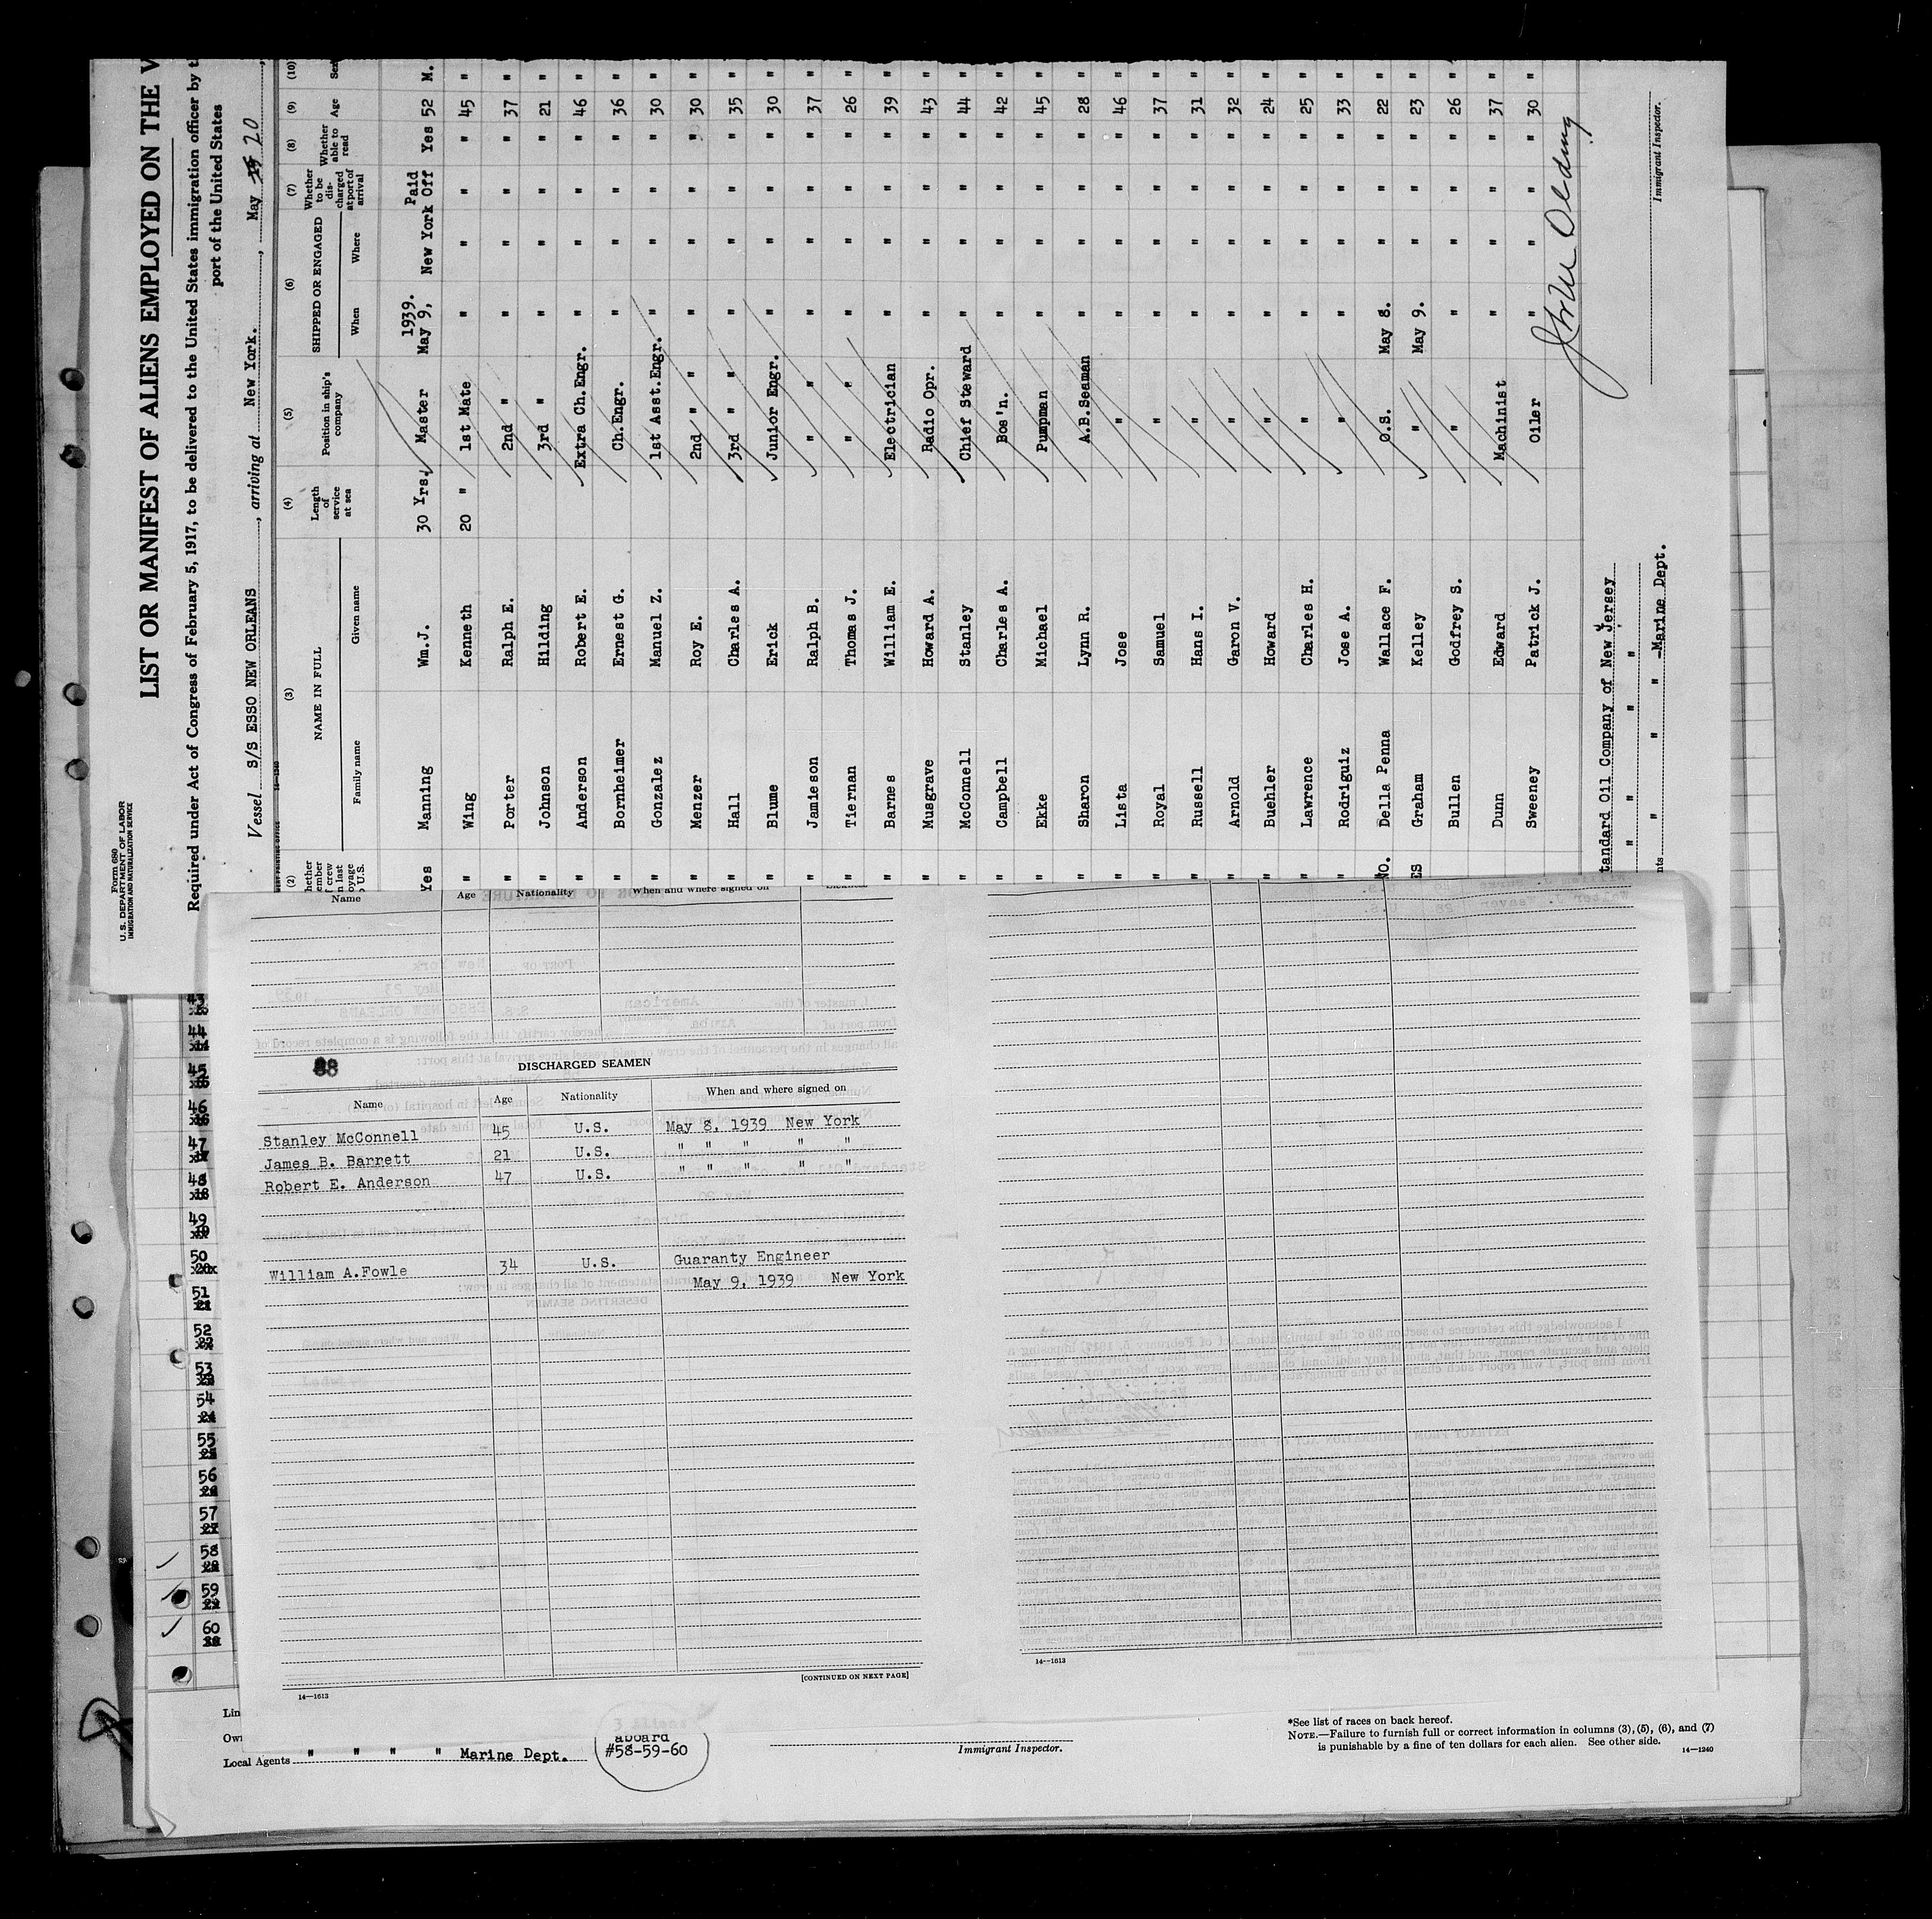 Form 680
U. S. DEPARTMENT OF LABOR
IMMIGRATION AND NATURALIZATION SERVICE
LIST OR MANIFEST OF ALIENS EMPLOYED ON THE V
Required under Act of Congress of February 5, 1917, to be delivered to the United States immigration officer by t
port of the United States
Vessel S/S ESSO NEW ORLEANS, arriving at New York., May 20
(2) (3) (4) (5) (6) (7) (8) (9) (10)
NAME IN FULL Length of service at sea Position in ship's company SHIPPED OR ENGAGED Whether to be discharged at port of arrival Whether able to read Age Sex
Family name Given name When Where
Yes Manning Wm.J. 30 Yrs. Master 1939. May 9, New York Paid Off Yes 52 M.
" Wing Kenneth 20 " 1st Mate " " " " 45 "
" Porter Ralph E. 2nd " " " " " 37 "
" Johnson Hilding 3rd " " " " " 21 "
" Anderson Robert E. Extra Ch.Engr. " " " " 46 "
" Bornheimer Ernest G. Ch.Engr. " " " " 36 "
" Gonzalez Manuel Z. 1st Asst.Engr. " " " " 30 "
" Menzer Roy E. 2nd " " " " " " 30 "
" Hall Charles A. 3rd " " " " " " 35 "
" Blume Erick Junior Engr. " " " " 30 "
" Jamieson Ralph B. " " " " " " 37 "
" Tiernan Thomas J. " " " " " " 26 "
" Barnes William E. Electrician " " " " 39 "
" Musgrave Howard A. Radio Opr. " " " " 43 "
" McConnell Stanley Chief Steward " " " " 44 "
" Campbell Charles A. Bos'n. " " " " 42 "
" Ekke Michael Pumpman " " " " 45 "
" Sharon Lynn R. A.B.Seaman " " " " 28 "
" Lista Jose " " " " " 46 "
" Royal Samuel " " " " " 37 "
" Russell Hans I. " " " " " 31 "
" Arnold Garon V. " " " " " 32 "
" Buehler Howard " " " " " 24 "
" Lawrence Charles H. " " " " " 25 "
" Rodriguiz Jose A. " " " " " 33 "
NO. Della Penna Wallace F. O.S. May 8. " " " 22 "
ES Graham Kelley " May 9. " " " 23 "
" Bullen Godfrey S. " " " " " 26 "
" Dunn Edward Machinist " " " " 37 "
" Sweeney Patrick J. Oiler " " " " 30 "
tandard Oil Company of New Jersey
" " " "
" " " -Marine Dept.
Immigrant Inspector.
Name Age Nationality When and where signed on
88
DISCHARGED SEAMEN
Name Age Nationality When and where signed on
Stanley McConnell 45 U.S. May 8, 1939 New York
James B. Barrett 21 U.S. " " " " "
Robert E. Anderson 47 U.S. " " " " "
William A.Fowle 34 U.S. Guaranty Engineer
May 9, 1939 New York
[CONTINUED ON NEXT PAGE]
14—1613
14—1613
43
44
45
46
47
48
49
50
51
52
53
54
55
56
57
58
59
60
Lin
Own
Local Agents " " " " Marine Dept.
aboard
#58-59-60
Immigrant Inspector.
*See list of races on back hereof.
NOTE.—Failure to furnish full or correct information in columns (3), (5), (6), and (7)
is punishable by a fine of ten dollars for each alien. See other side.
14—1240